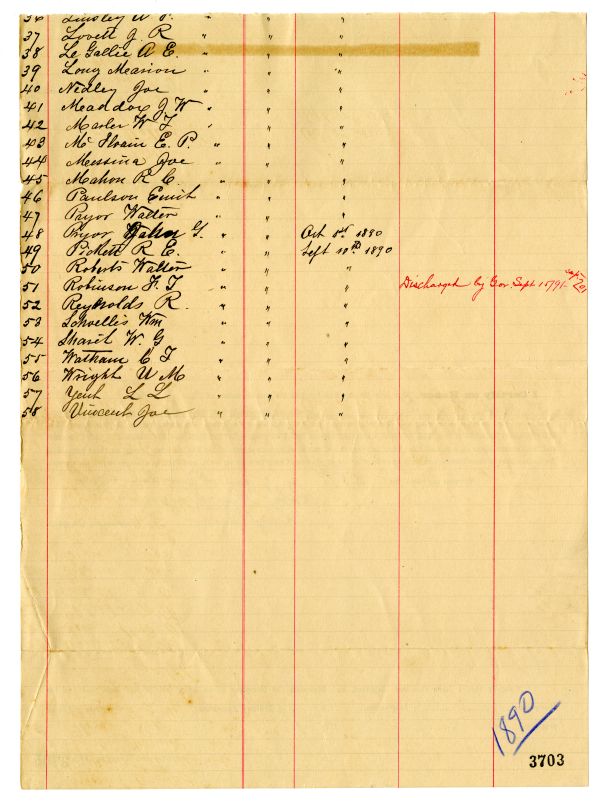 36 Linsley W. P. " " "
37 Lovett J. R " " "
38 Le Gallie A E. " " "
39 Long Mearion " " "
40 Nedley Joe " " "
41 Meaddox J. W " " "
42 Marler W T " " "
43 Mc Ilvain E. P. " " "
44 Messina Joe " " "
45 Mahon R C. " " "
46 Paulson Emit " " "
47 Payor Walter " " "
48 Pryor G. " " Oct 1st 1890
49 Pickett R E. " " Sept 10th 1890
50 Roberts Walter " " "
51 Robinson F. T " " " Discharged by Gov Sept 15/91
52 Reynolds R. " " "
53 Schvellis Wm " " "
54 Sharit W. G " " "
55 Watham C T " " "
56 Wright U M " " "
57 Yent L L " " "
58 Vincent Joe " " "
1890
3703